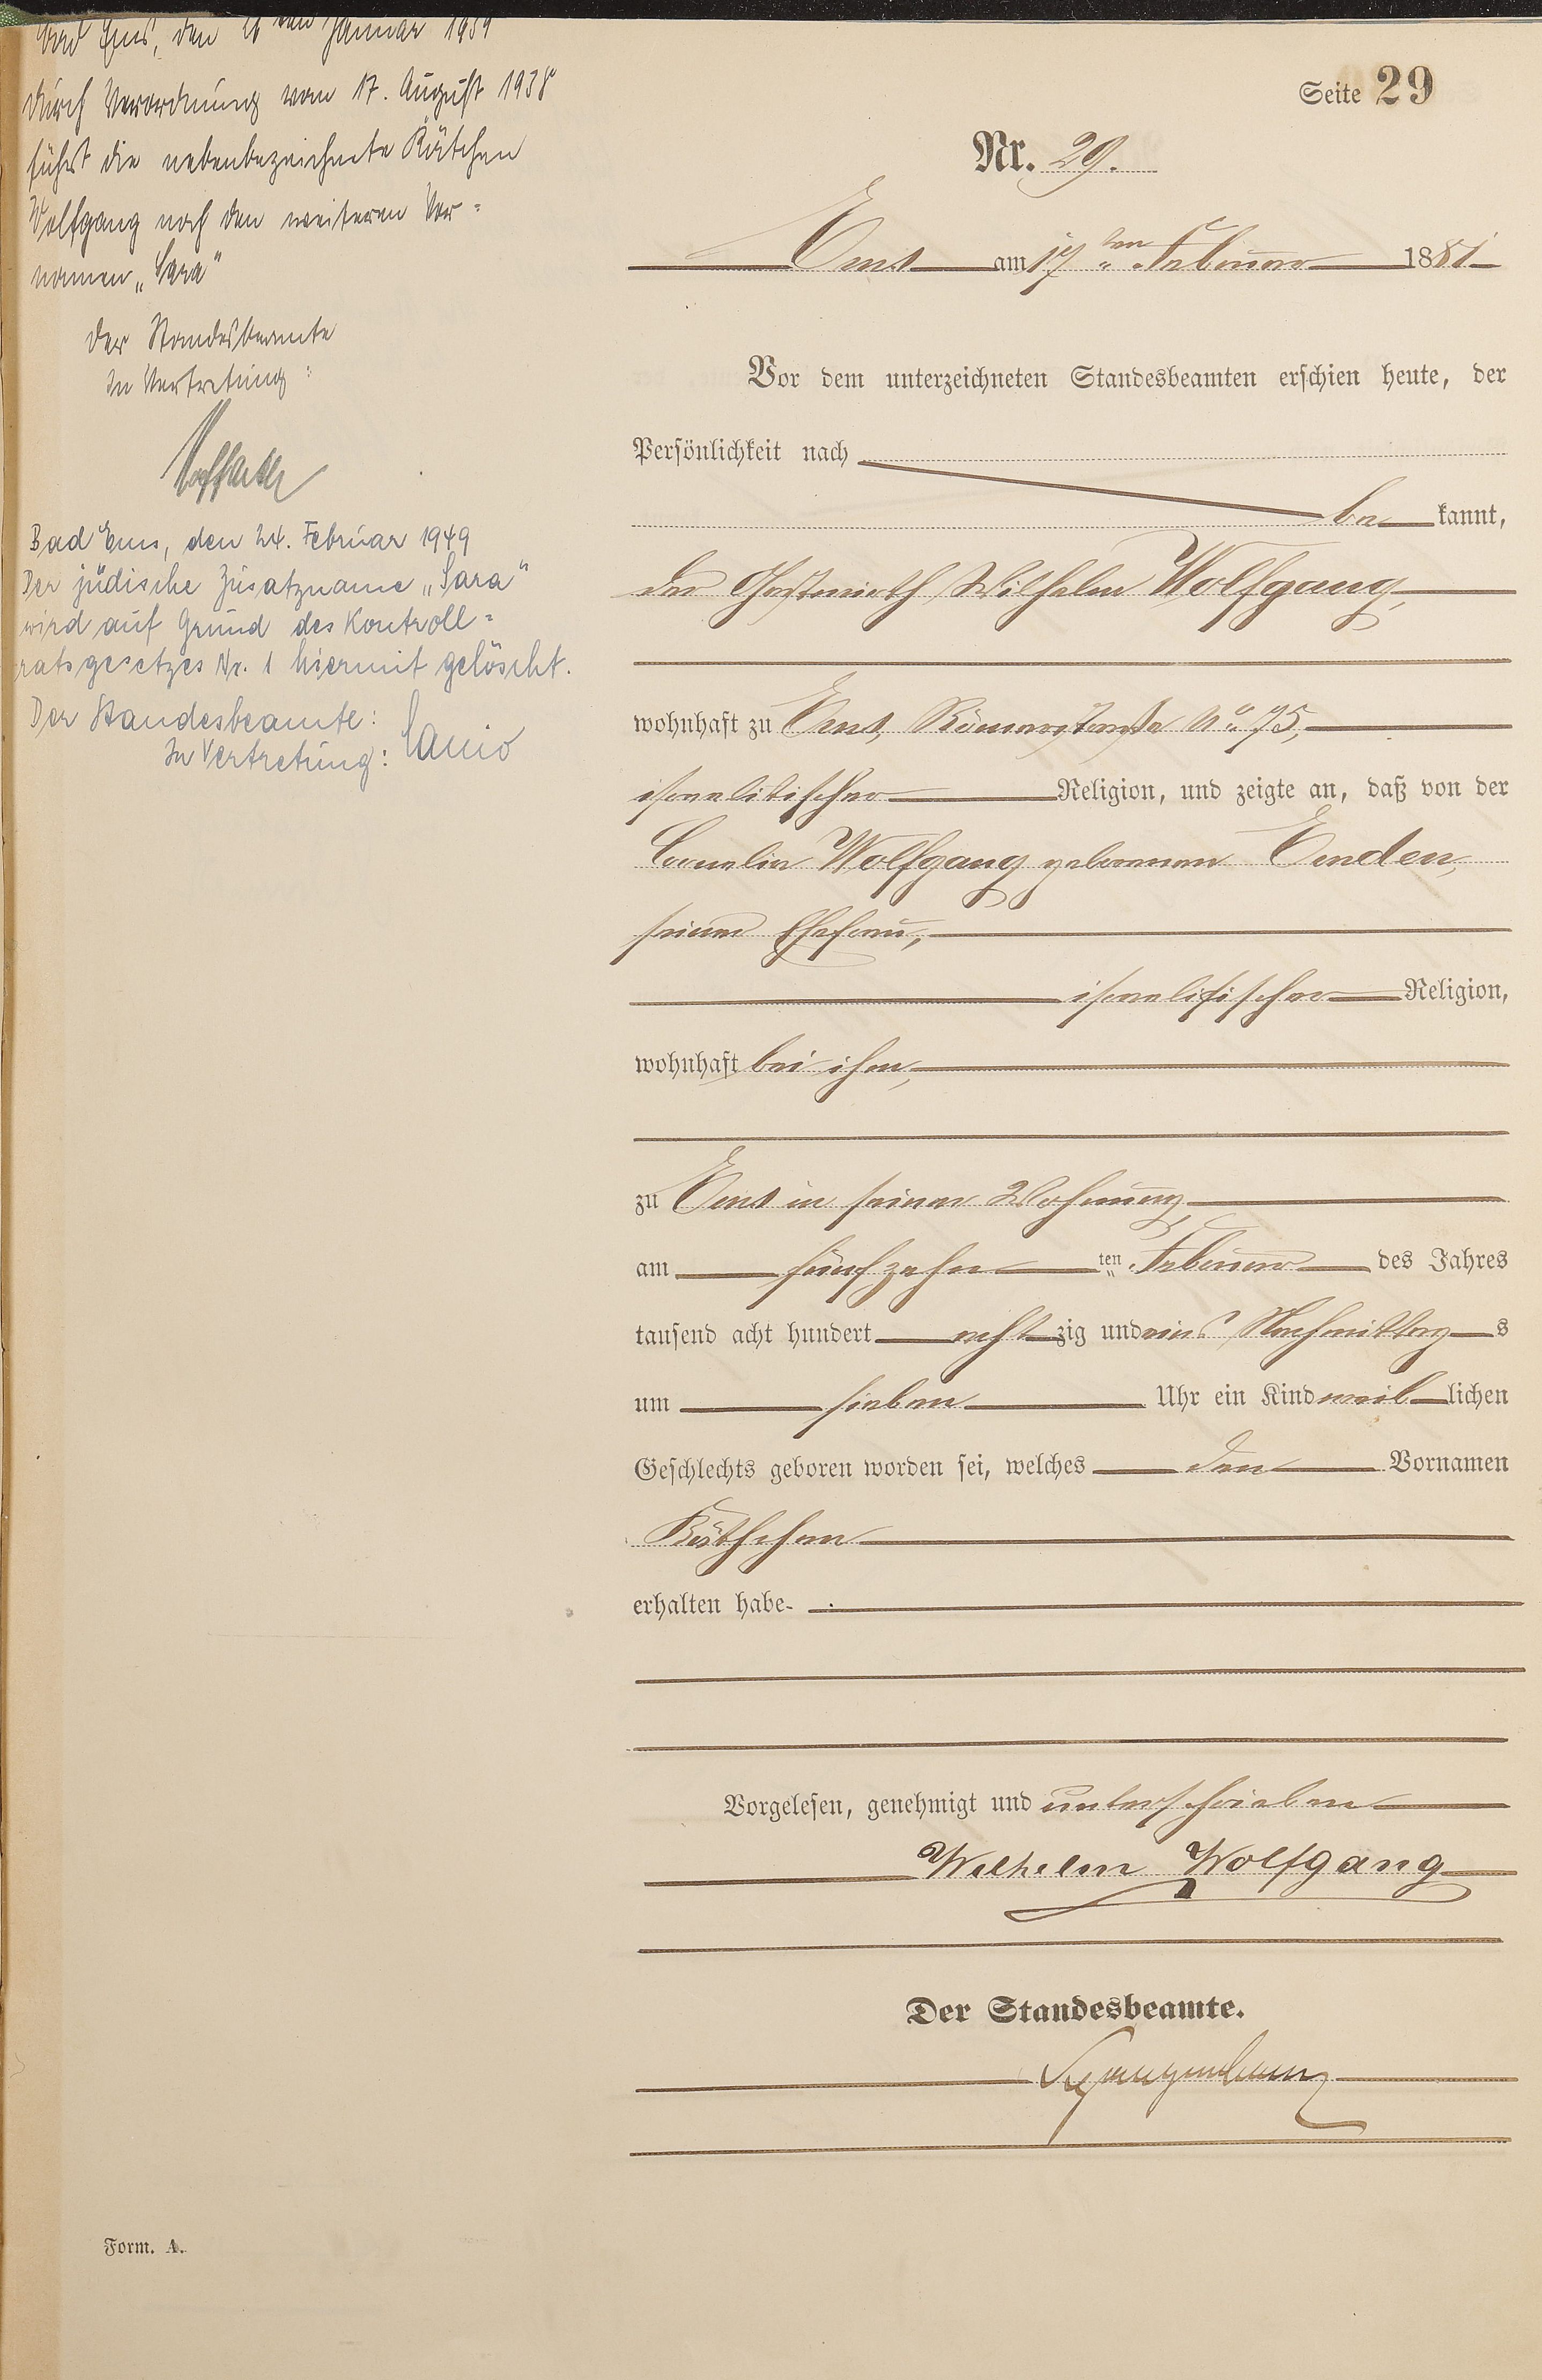 Bad Ems, den 16ten Januar 1939
Durch Verordnung vom 17. August 1938
führt die nebenbezeichnete Kätchen
Wolfgang noch den weiteren Vor=
namen „Sara"
Der Standesbeamte
In Vertretung:
Bad Ems, den 24. Februar 1949
Der jüdische Zusatzname „Sara"
wird auf Grund des Kontroll=
ratsgesetzes Nr. 1 hiermit gelöscht.
Der Standesbeamte:
In Vertretung:
Seite 29
Nr. 29.
Ems am 17ten Februar 1881
Vor dem unterzeichneten Standesbeamten erschien heute, der
Persönlichkeit nach
be kannt,
der Gastwirth Wilhelm Wolfgang,
wohnhaft zu Ems, Römerstraße No 75,
israelitischer Religion, und zeigte an, daß von der
Wolfgang geborenen Emden,
seiner Ehefrau,
israelitischer Religion,
wohnhaft bei ihm,
zu Ems in seiner Wohnung
am fünfzehn ten Februar des Jahres
tausend acht hundert acht zig und eins Nachmittag s
um sieben Uhr ein Kind weib lichen
Geschlechts geboren worden sei, welches den Vornamen
Käthchen
erhalten habe.
Vorgelesen, genehmigt und unterschrieben
Wilhelm Wolfgang
Der Standesbeamte.
Form. A.